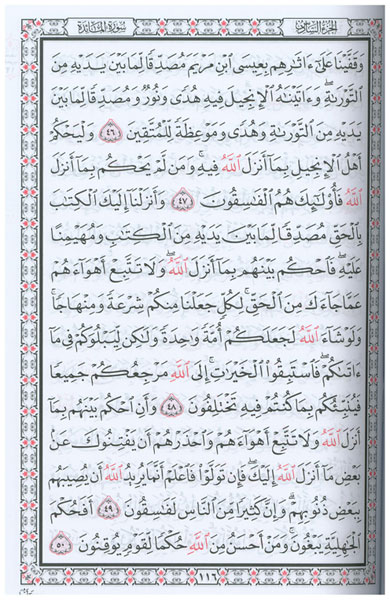 سورة المائدة
الجزء السادس
وَقَفَّيْنَا عَلَىٰ ءَاثَٰرِهِم بِعِيسَى ابْنِ مَرْيَمَ مُصَدِّقًا لِّمَا بَيْنَ يَدَيْهِ مِنَ
التَّوْرَىٰةِ ۖ وَءَاتَيْنَٰهُ الْإِنجِيلَ فِيهِ هُدًى وَنُورٌ وَمُصَدِّقًا لِّمَا بَيْنَ
يَدَيْهِ مِنَ التَّوْرَىٰةِ وَهُدًى وَمَوْعِظَةً لِّلْمُتَّقِينَ ٤٦ وَلْيَحْكُمْ
أَهْلُ الْإِنجِيلِ بِمَا أَنزَلَ اللَّهُ فِيهِ ۚ وَمَن لَّمْ يَحْكُم بِمَا أَنزَلَ
اللَّهُ فَأُو۟لَٰٓئِكَ هُمُ الْفَٰسِقُونَ ٤٧ وَأَنزَلْنَا إِلَيْكَ الْكِتَٰبَ
بِالْحَقِّ مُصَدِّقًا لِّمَا بَيْنَ يَدَيْهِ مِنَ الْكِتَٰبِ وَمُهَيْمِنًا
عَلَيْهِ ۖ فَاحْكُم بَيْنَهُم بِمَا أَنزَلَ اللَّهُ ۖ وَلَا تَتَّبِعْ أَهْوَاءَهُمْ
عَمَّا جَاءَكَ مِنَ الْحَقِّ ۚ لِكُلٍّ جَعَلْنَا مِنكُمْ شِرْعَةً وَمِنْهَاجًا ۚ
وَلَوْ شَاءَ اللَّهُ لَجَعَلَكُمْ أُمَّةً وَٰحِدَةً وَلَٰكِن لِّيَبْلُوَكُمْ فِي مَا
ءَاتَىٰكُمْ ۖ فَاسْتَبِقُوا الْخَيْرَٰتِ ۚ إِلَى اللَّهِ مَرْجِعُكُمْ جَمِيعًا
فَيُنَبِّئُكُم بِمَا كُنتُمْ فِيهِ تَخْتَلِفُونَ ٤٨ وَأَنِ احْكُم بَيْنَهُم بِمَا
أَنزَلَ اللَّهُ وَلَا تَتَّبِعْ أَهْوَاءَهُمْ وَاحْذَرْهُمْ أَن يَفْتِنُوكَ عَن
بَعْضِ مَا أَنزَلَ اللَّهُ إِلَيْكَ ۖ فَإِن تَوَلَّوْا فَاعْلَمْ أَنَّمَا يُرِيدُ اللَّهُ أَن يُصِيبَهُم
بِبَعْضِ ذُنُوبِهِمْ ۗ وَإِنَّ كَثِيرًا مِّنَ النَّاسِ لَفَٰسِقُونَ ٤٩ أَفَحُكْمَ
الْجَٰهِلِيَّةِ يَبْغُونَ ۚ وَمَنْ أَحْسَنُ مِنَ اللَّهِ حُكْمًا لِّقَوْمٍ يُوقِنُونَ ٥٠
١١٦